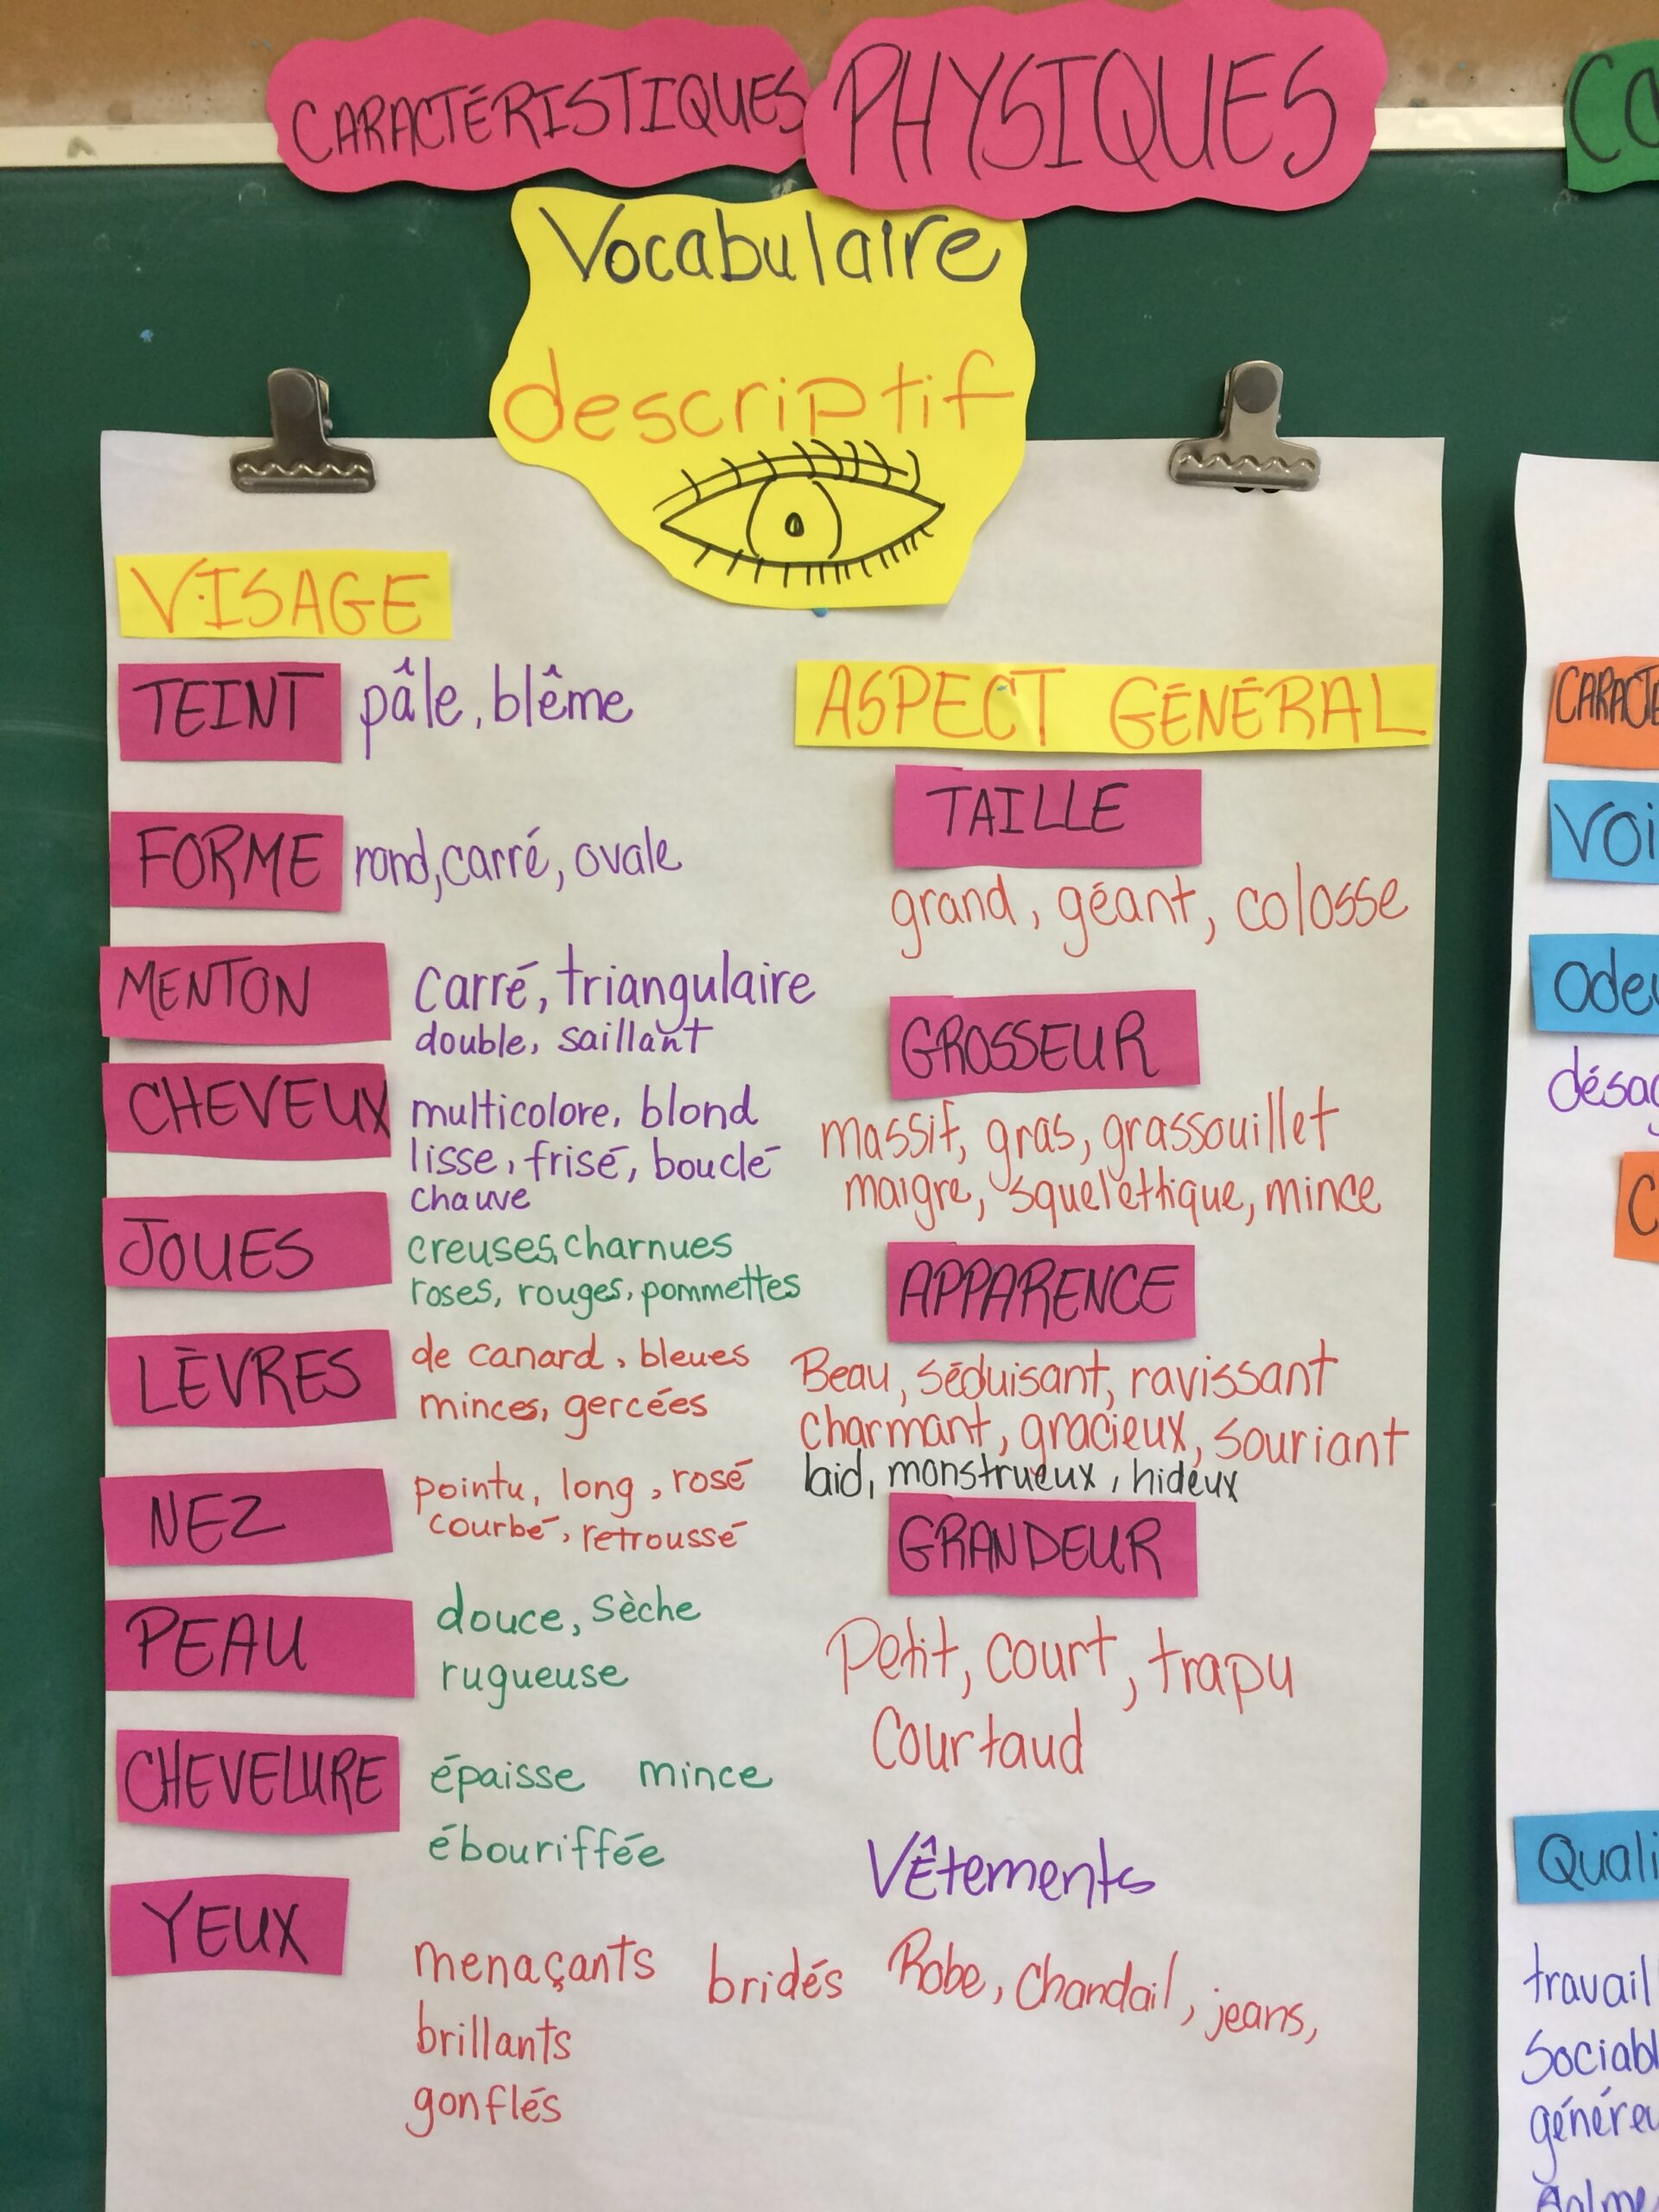 CARACTÉRISTIQUES PHYSIQUES
Vocabulaire
descriptif
VISAGE
TEINT pâle, blême
FORME rond, carré, ovale
MENTON carré, triangulaire
double, saillant
CHEVEUX multicolore, blond
lisse, frisé, bouclé
chauve
JOUES creuses, charnues
roses, rouges, pommettes
LÈVRES de canard, bleues
minces, gercées
NEZ pointu, long, rosé
courbé, retroussé
PEAU douce, sèche
rugueuse
CHEVELURE épaisse mince
ébouriffée
YEUX
menaçants bridés
brillants
gonflés
ASPECT GÉNÉRAL
TAILLE
grand, géant, colosse
GROSSEUR
massif, gras, grassouillet
maigre, squelettique, mince
APPARENCE
Beau, séduisant, ravissant
charmant, gracieux, souriant
laid, monstrueux, hideux
GRANDEUR
Petit, court, trapu
Courtaud
Vêtements
Robe, Chandail, jeans,
CARACTÉ
Voi
Odeu
désag
C
Quali
travail
Sociabl
généreu